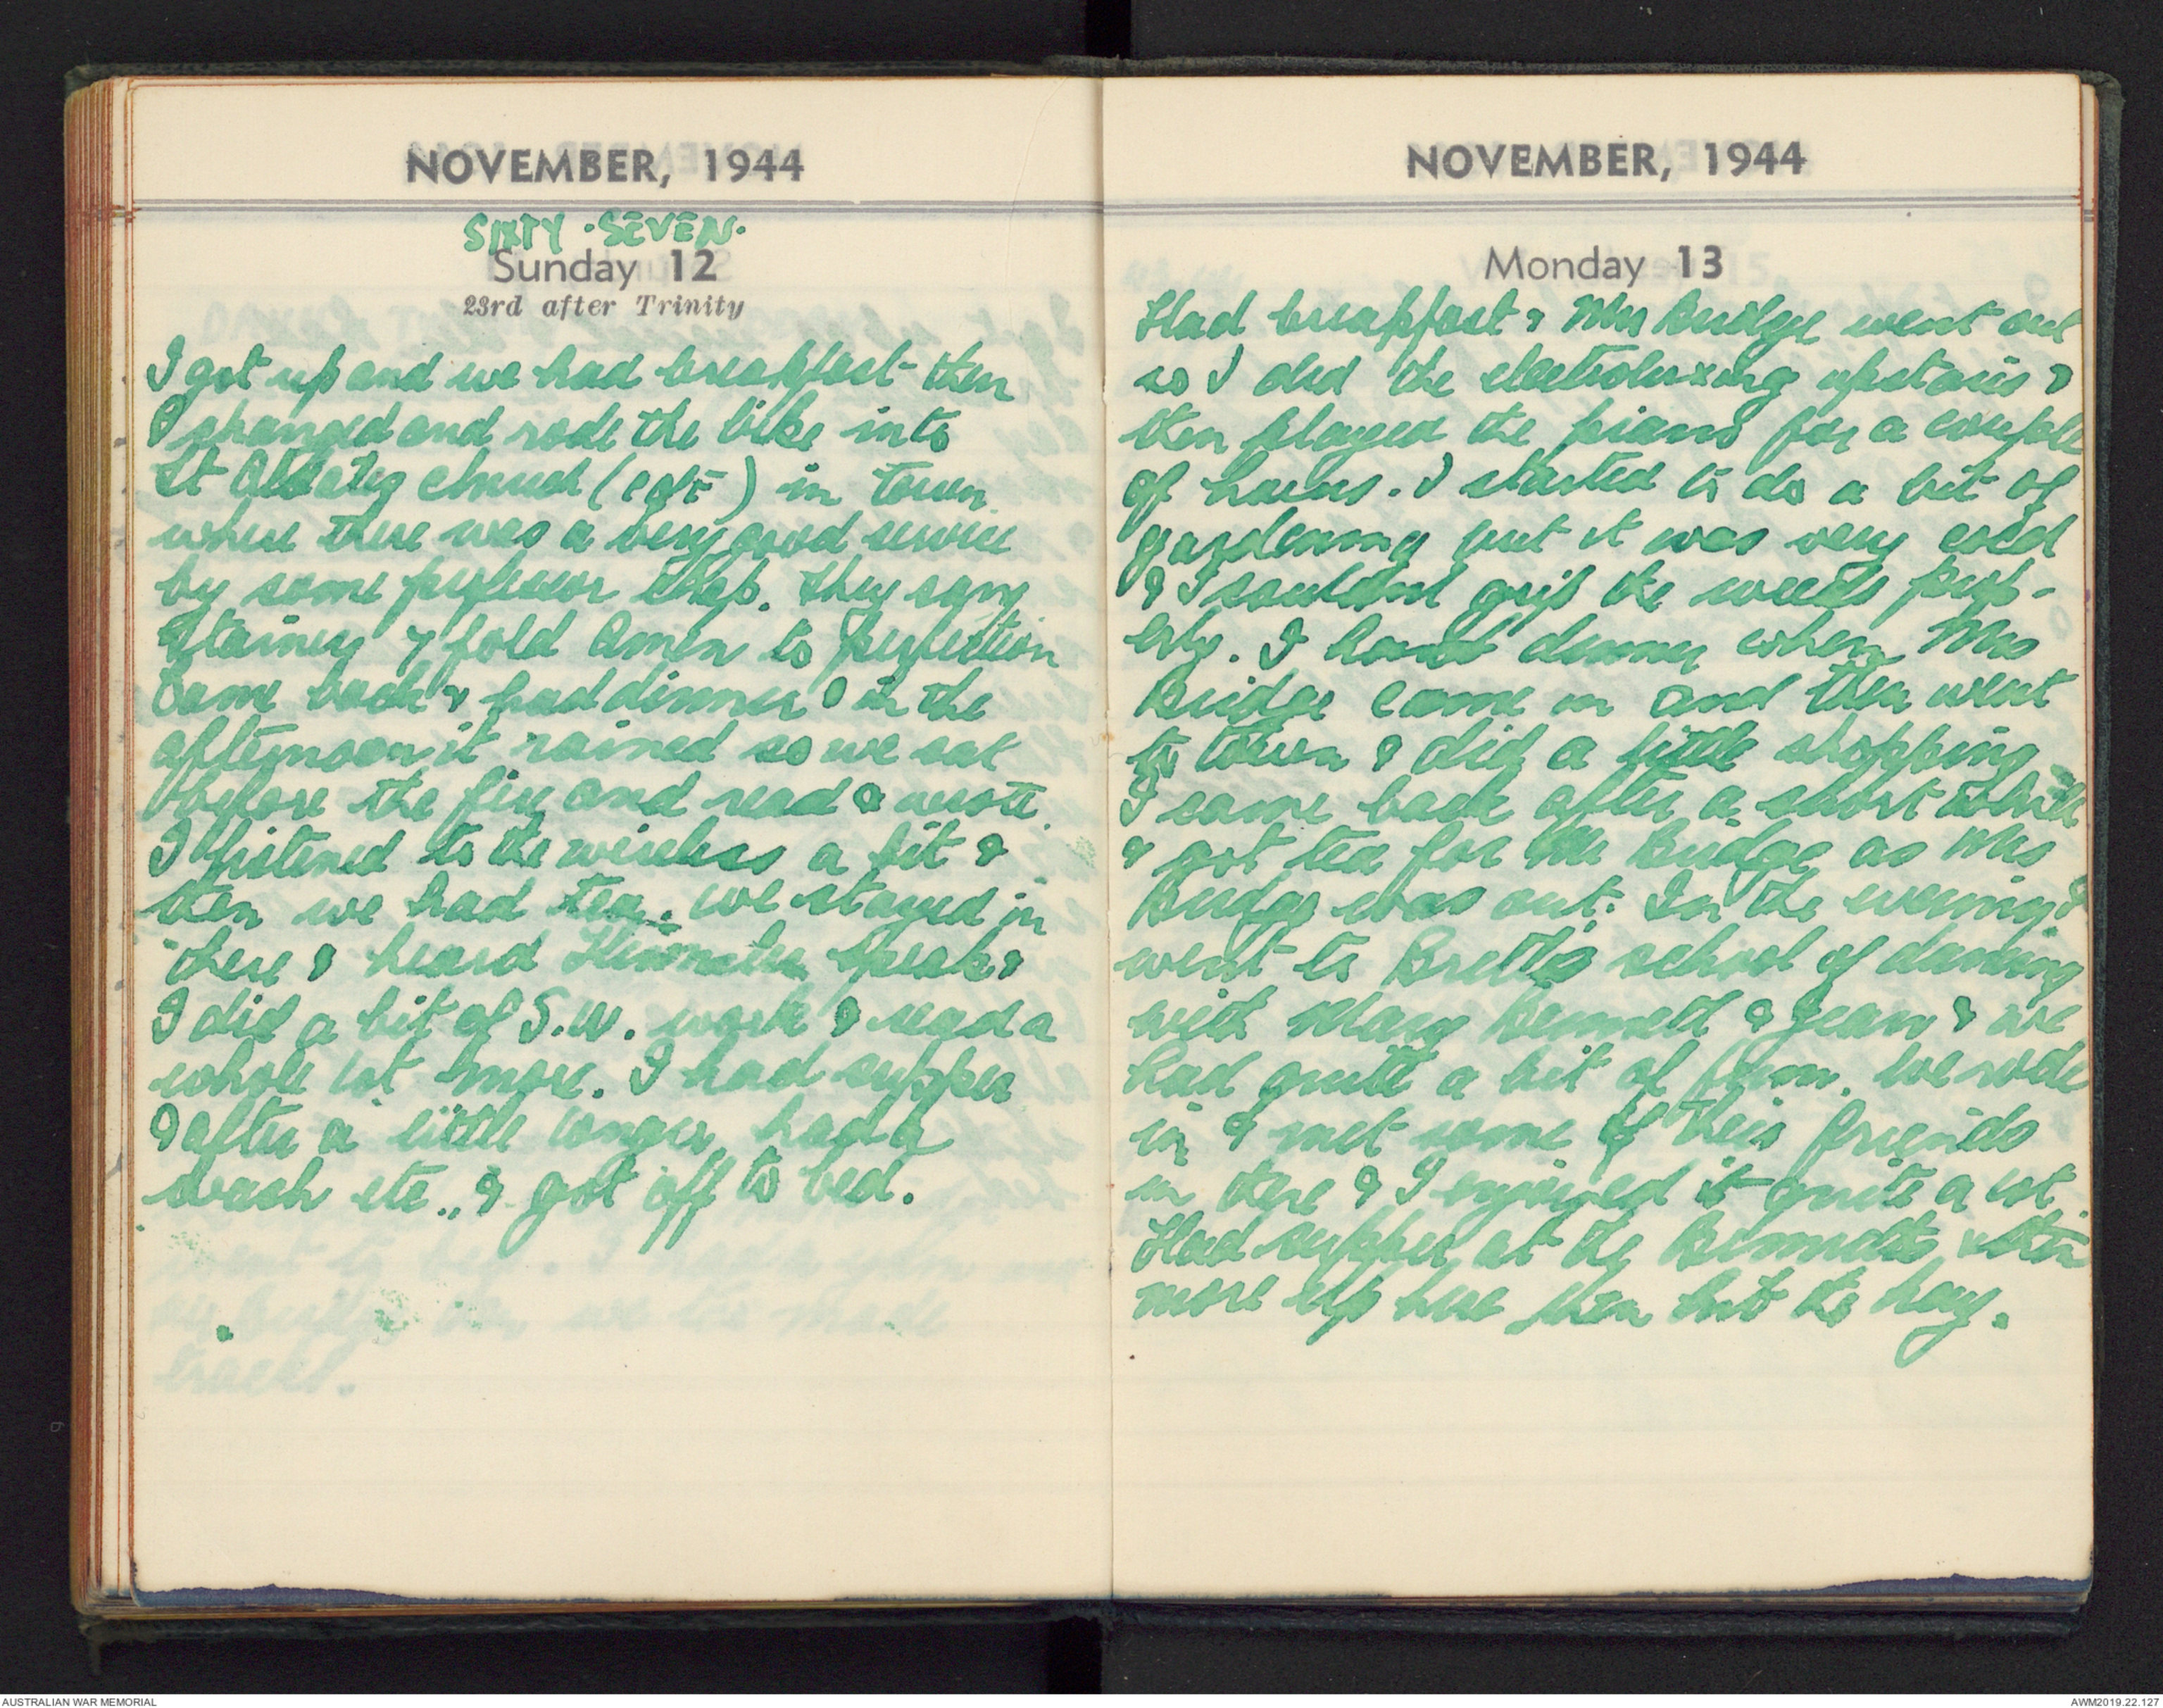 NOVEMBER, 1944
SIXTY-SEVEN.
Sunday 12
23rd after Trinity
I got up and we had breakfast then
I changed and rode the bike into
St Aldates church (CofE) in town
where there was a very good service
by some professor chap. They sang
Stainers 7 fold Amen to perfection
Came back & had dinner & in the
afternoon it rained so we sat
before the fire and read & wrote.
I listened to the wireless a bit &
then we had tea. We stayed in
there & heard Himmler speak &
I did a bit of S.W. work & read a
whole lot more. I had supper
& after a little longer had a
wash etc., & got off to bed.
NOVEMBER, 1944
Monday 13
Had breakfast & Mrs Budge went out
so I did the electroluxing upstairs &
then played the piano for a couple
of hours. I started to do a bit of
gardening but it was very cold
& I couldnt grip the weeds prop-
erly. I had dinner when Mrs
Budge came in and then went
to town & did a little shopping
I came back after a short while
& got tea for Mr Budge as Mrs
Budge was out. In the evening I
went to Bretts school of dancing
with Mary Bennett & Jean & we
had quite a bit of fun. We rode
in & met some of their friends
in there & I enjoyed it quite a lot.
Had supper at the Bennetts & then
more here then hit the hay.
AUSTRALIAN WAR MEMORIAL
AWM2019.22.127